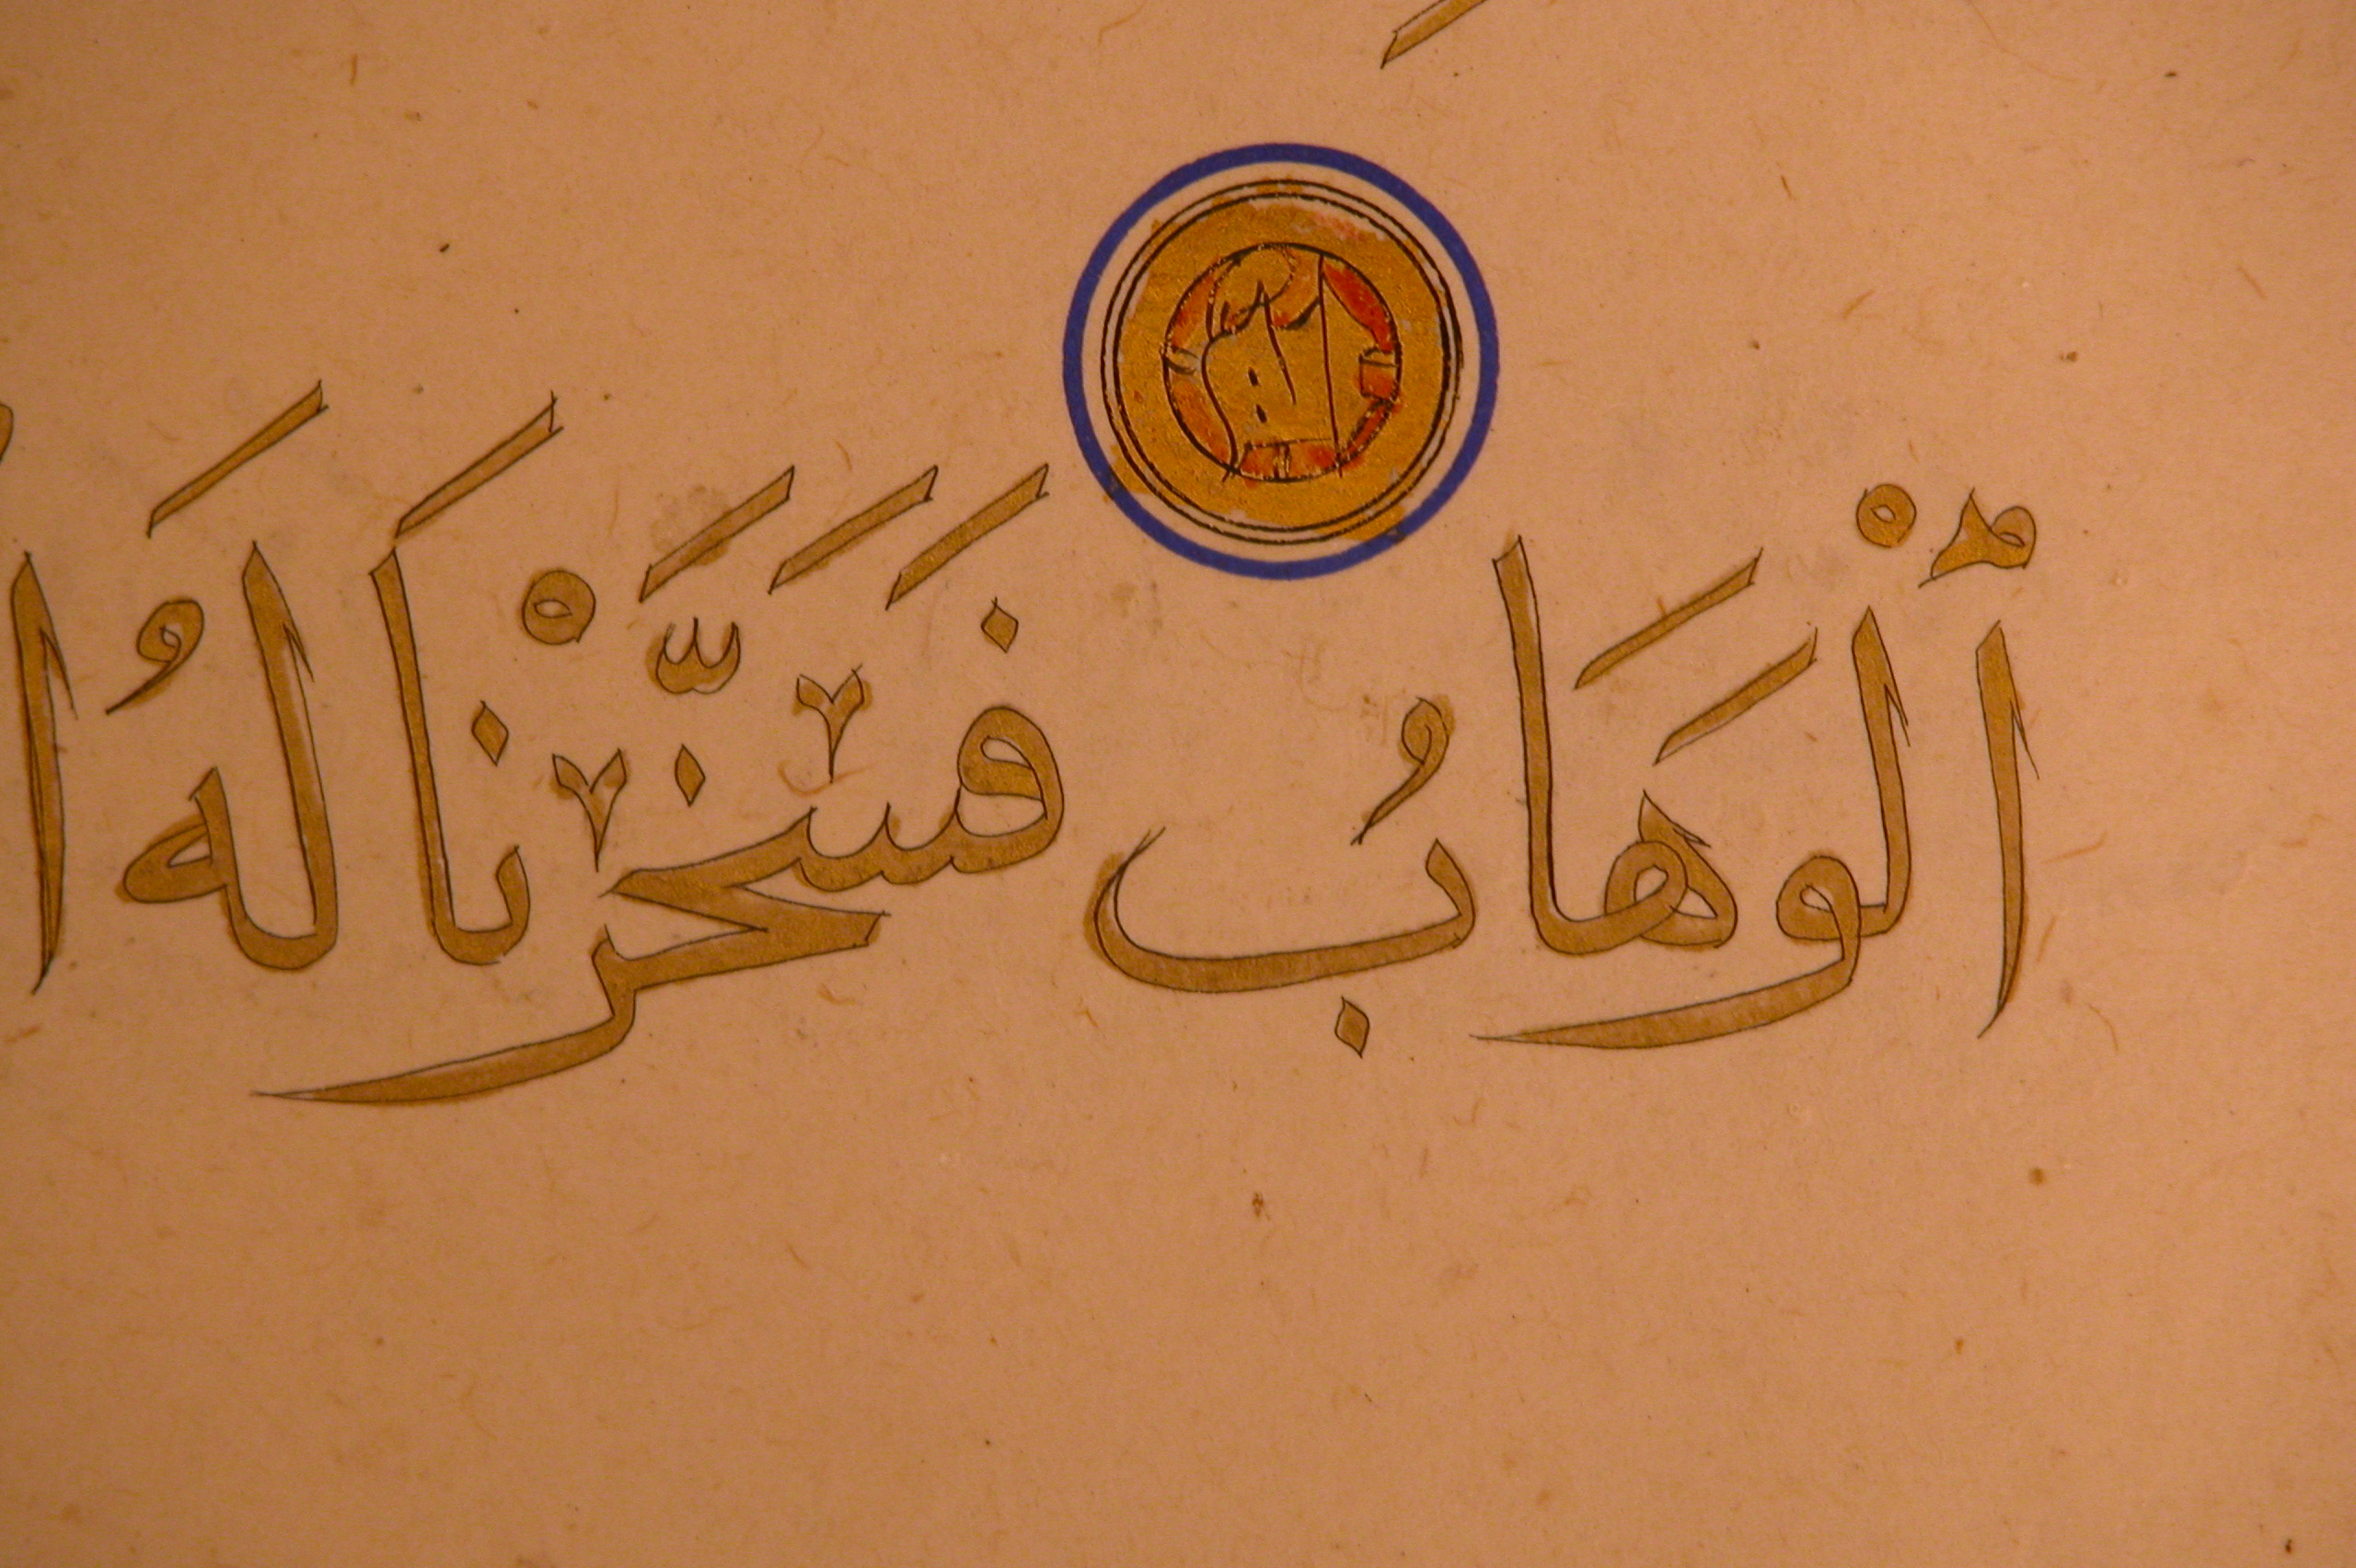 ٱلْوَهَابُ فَسَخَّرْنَا لَهُ ا